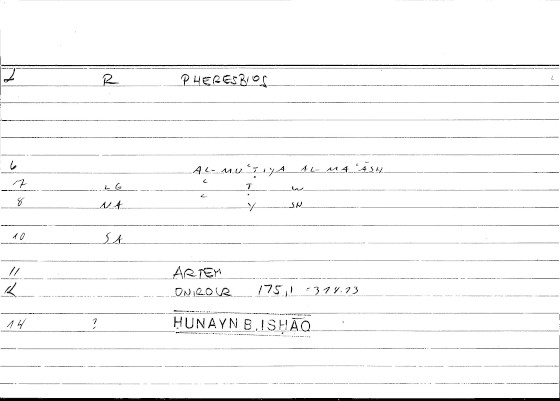 1 R PHERESBIOS
6 AL-MUʿṬIYA AL-MAʿĀSH
7 LG ʿ Ṭ W
8 NA ʿ Y SN
10 SA
11 ARTEM
12 ONIROCR 175,1 -314.13
14 ? ḤUNAYN B. ISḤĀQ